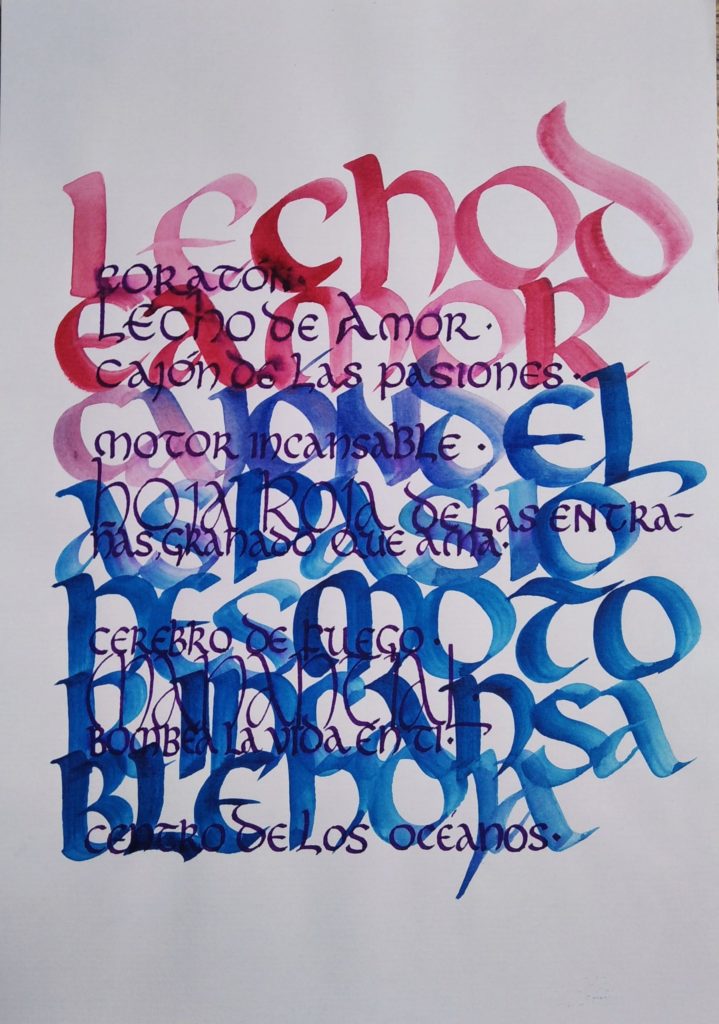 LECHOD
EAMOR
CAJONDEL
ASPASIO
NESMOTO
RINCANSA
BLEHOJA
CORAZÓN·
LECHO DE AMOR·
CAJÓN DE LAS PASIONES·
MOTOR INCANSABLE·
HOJA ROJA DE LAS ENTRA-
ÑAS, GRANADO QUE AMA·
CEREBRO DE FUEGO·
MANANTIAL
BOMBEA LA VIDA EN TI·
CENTRO DE LOS OCÉANOS·